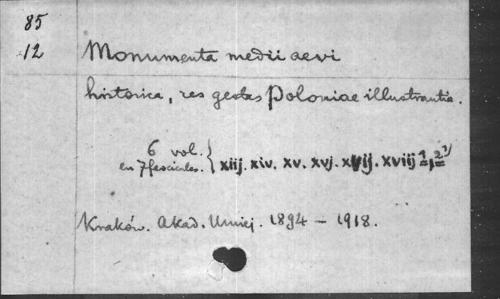 85
12
Monumenta medii aevi
historica, res gestas Poloniae illustrantia.
6 vol.
en 7 fascicules. { xiij. xiv. xv. xvj. xvij. xviij 1, 2
Kraków. Akad. Umiej. 1894 – 1918.